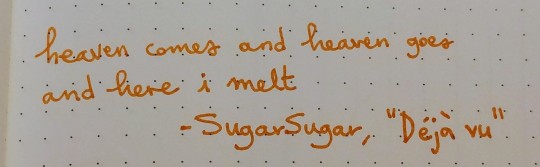 heaven comes and heaven goes
and here i melt
-SugarSugar, "Déjà vu"